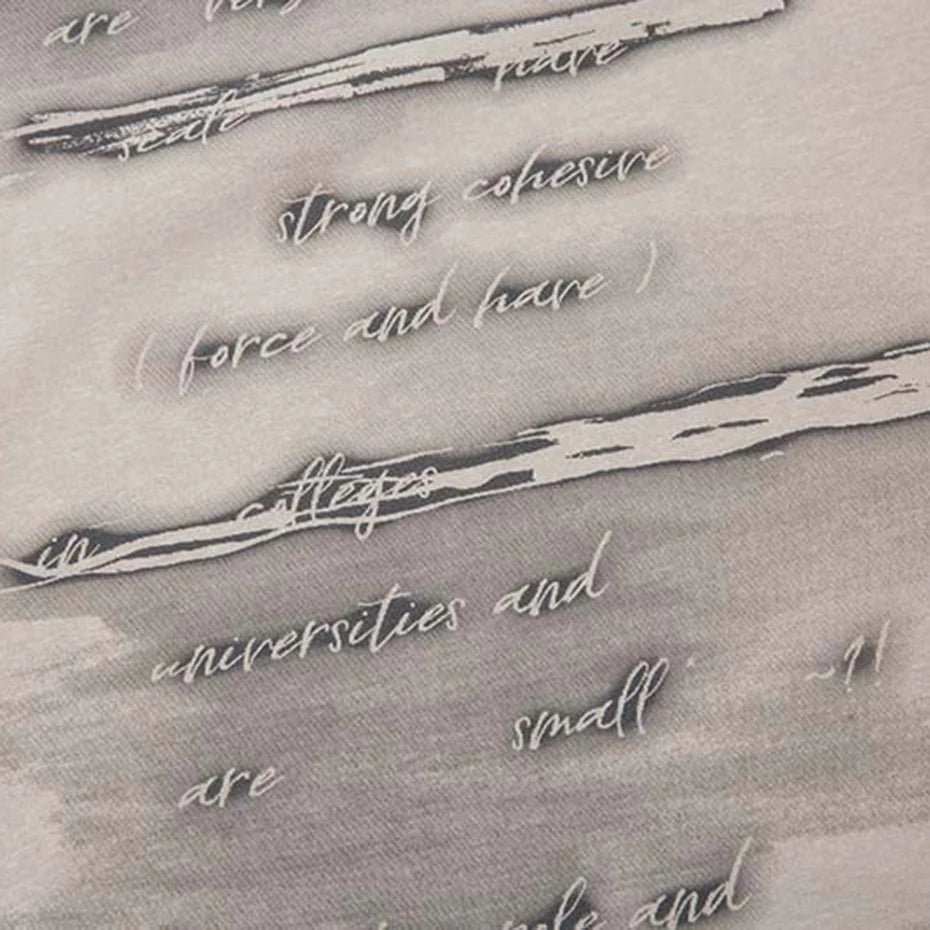 are very
scale have
strong cohesive
( force and have )
in colleges
universities and
small ~?!
are
and